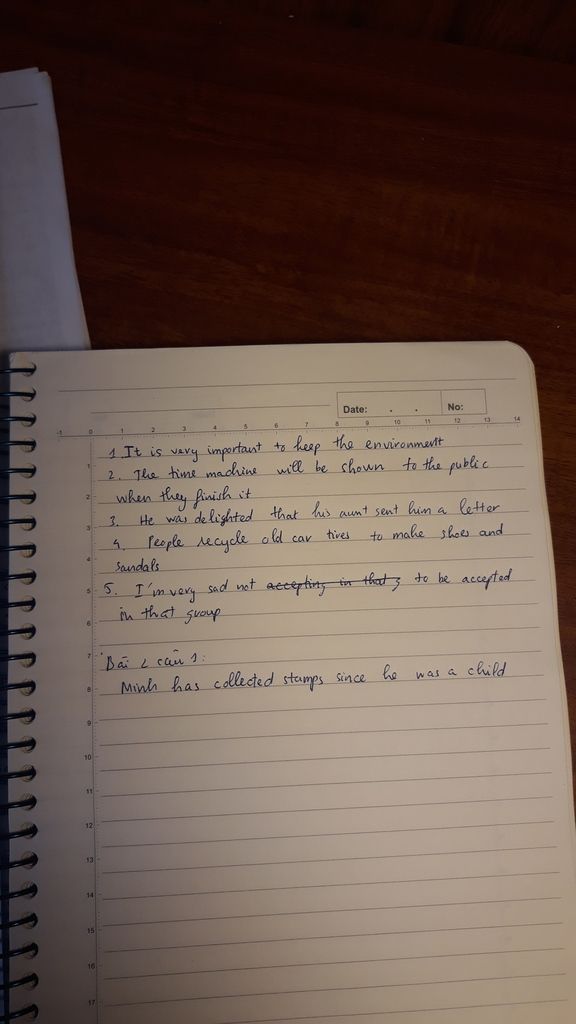 Date: . . No:
-1 0 1 2 3 4 5 6 7 8 9 10 11 12 13 14
1 It is very important to keep the environment
2. The time machine will be shown to the public
when they finish it
3. He was delighted that his aunt sent him a letter
4. People recycle old car tires to make shoes and
sandals
5. I'm very sad not accepting in that to be accepted
in that group
Bài 2 câu 1:
Minh has collected stamps since he was a child
1
2
3
4
5
6
7
8
9
10
11
12
13
14
15
16
17